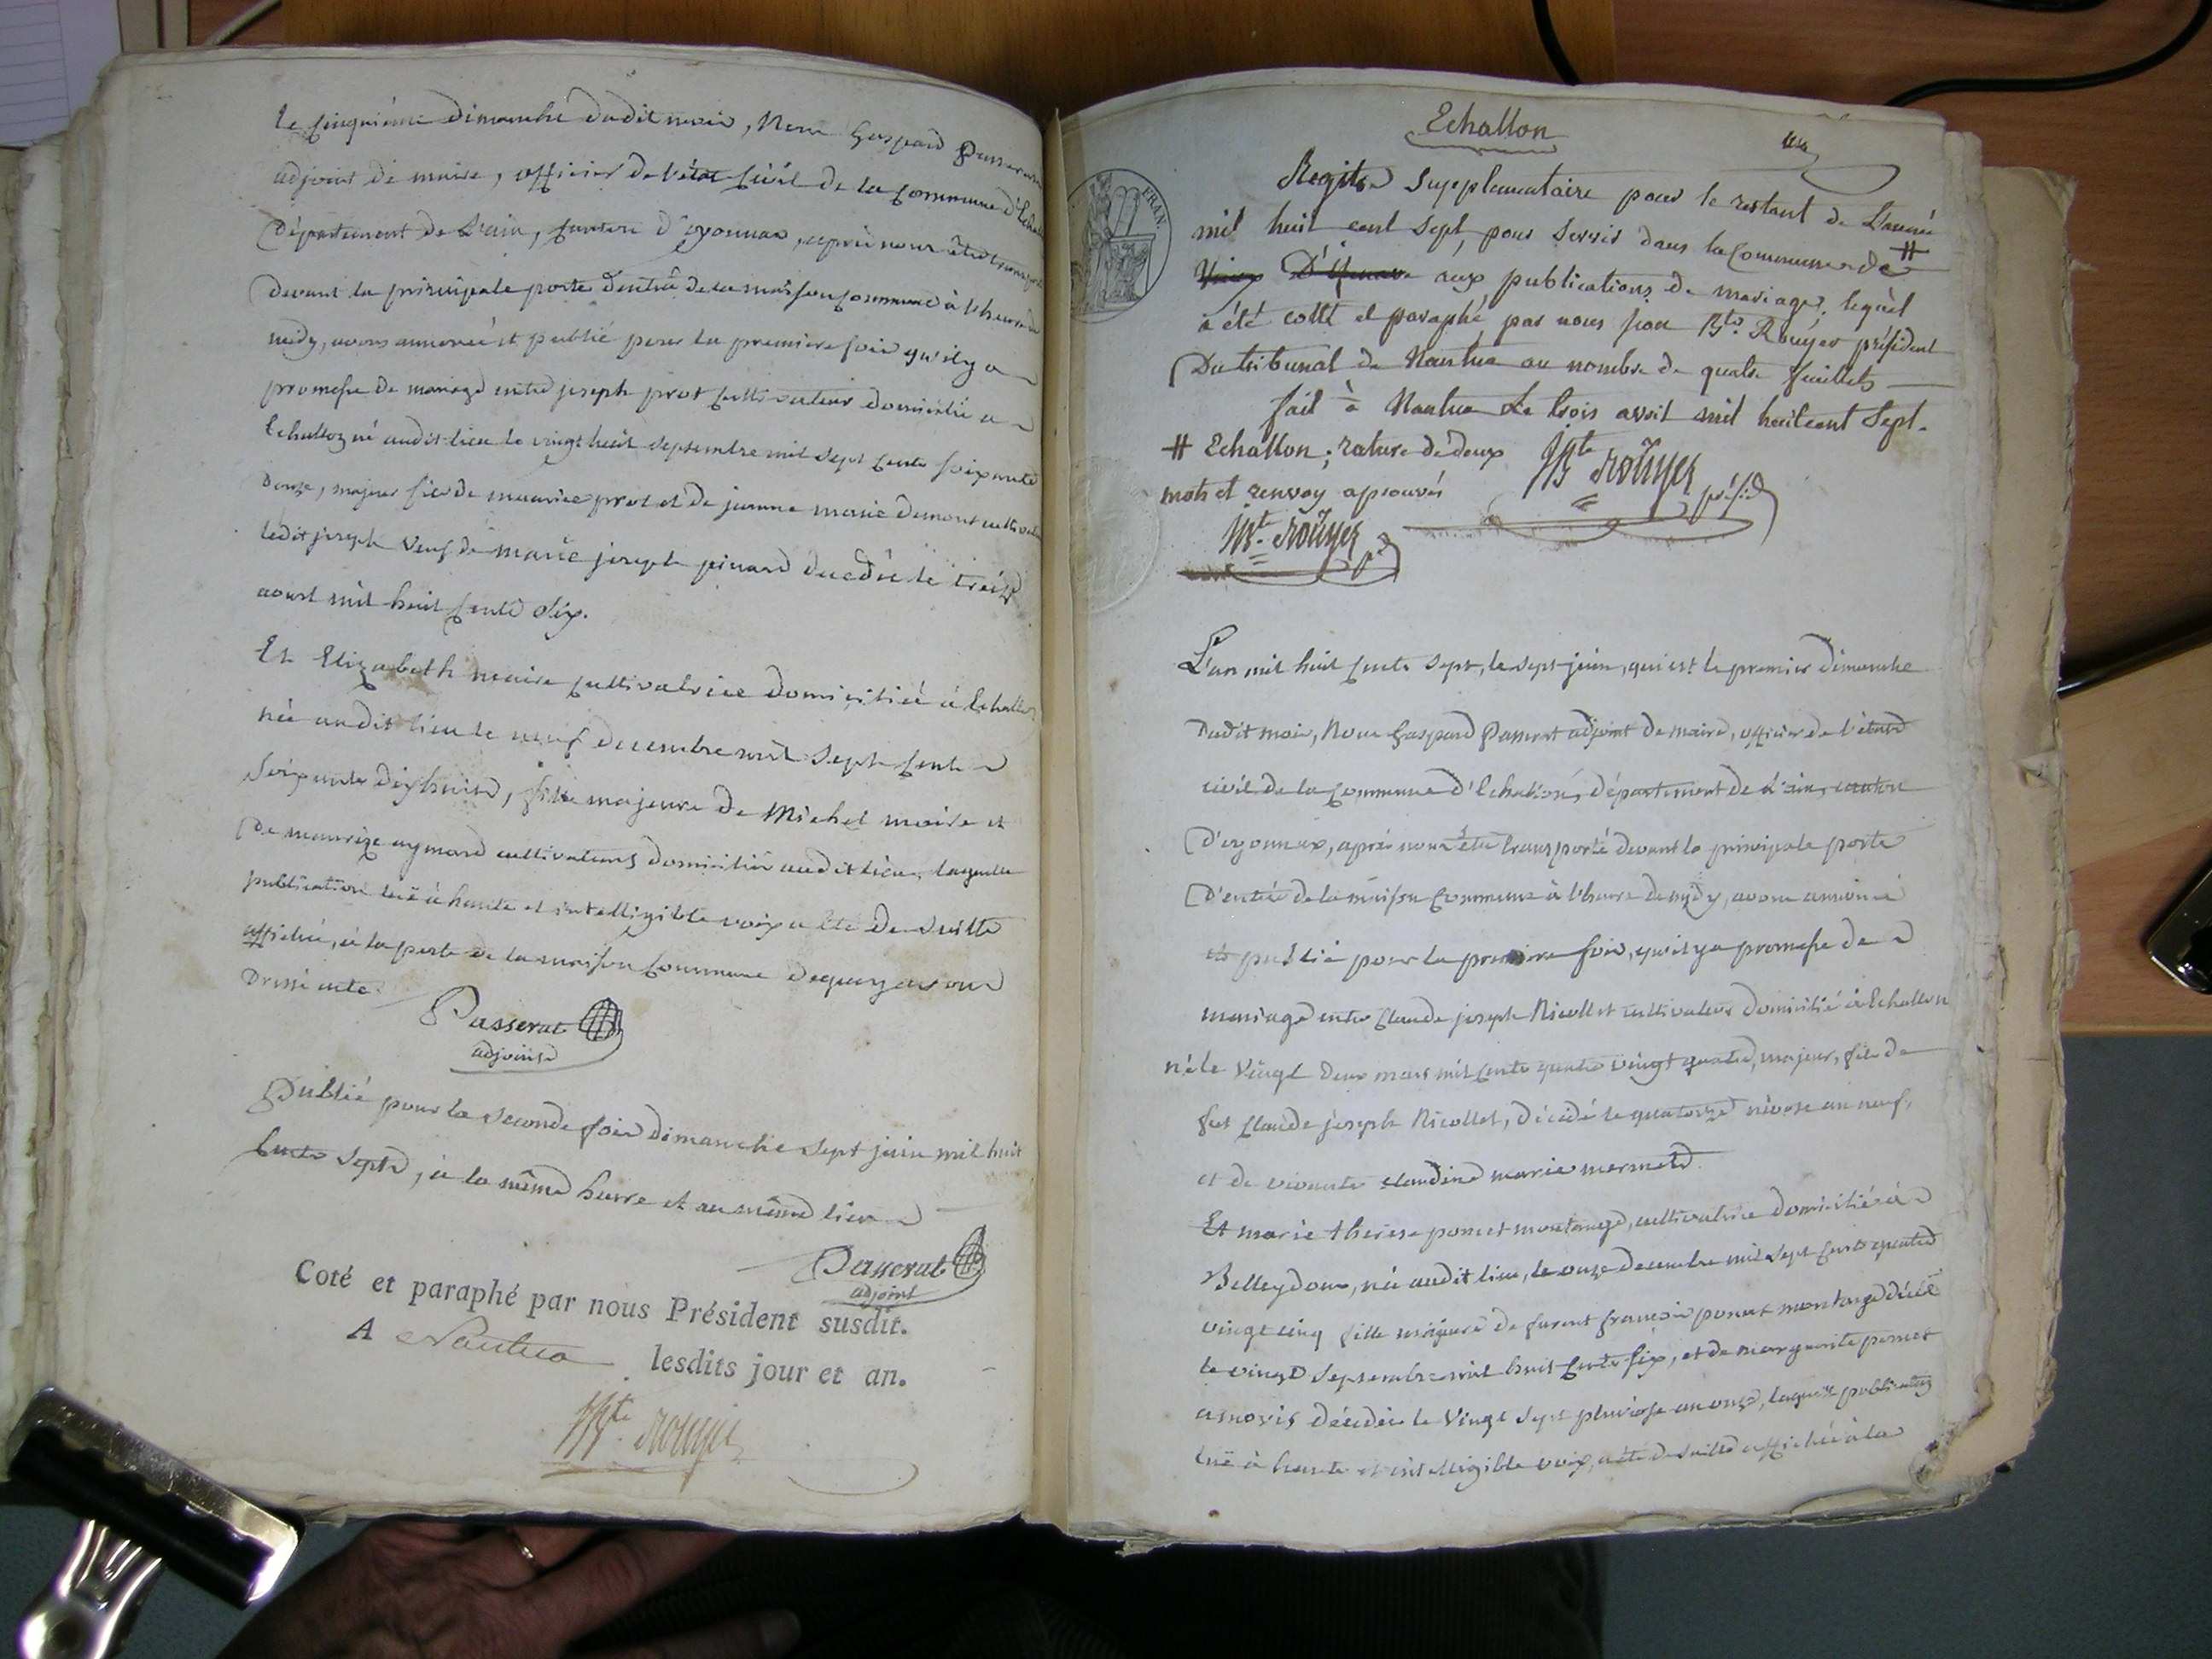 le cinquième dimanche dudit mois, Nous Gaspard Passerat
adjoint de maire, officier de l'état civil de la commune d'Echallon
Département de L'ain, canton d'oyonnax, après nous être transporté
devant la principale porte d'entrée de la maison commune à l'heure de
midy, avons annoncé et publié pour la premiere fois qu'il y a
promesse de mariage entre joseph prost cultivateur domicilié a
Echallon né audit lieu le vingt huit septembre mil sept cents soixante
douze, majeur fils de maurice prost et de jeanne marie
ledit joseph veuf de marie joseph pinard décédée le treize
aoust mil huit cents six.
Et Elizabeth maire cultivatrice domiciliée à Echallon
née audit lieu le neuf decembre mil sept cent
soixante dixhuit, fille majeure de Michel maire et
de maurize aymard cultivateurs domiciliés audit lieu, laquelle
publication luë à haute et intelligible voix a été de suitte
affichée, à la porte de la maison commune dequoy avons
dressé acte.
Passerat
adjoint
Publié pour la seconde fois dimanche sept juin mil huit
cents sept, à la même heure et au même lieu
Passerat
adjoint
Coté et paraphé par nous Président susdit.
A Nantua lesdits jour et an.
Bte. Roüyer
Echallon
FRAN.
Regitre supplementaire pour le restant de L'année
mil huit cent sept, pour servir dans la Commune de #
aux publications de mariages, lequel
a été cotté et paraphé par nous jean Bte. Roüyer président
Du tribunal de Nantua au nombre de quatre feuillets
fait à Nantua Le trois avril mil huit cent sept.
# Echallon; rature de deux
mots et renvoy aprouvés
Bte Roüyer présid
Bte. Roüyer pd
L'an mil huit cents sept, le sept juin, qui est le premier dimanche
dudit mois, Nous Gaspard Passerat adjoint de maire, officier de l'état
civil de la commune d'Echallon, département de L'ain, canton
D'oyonnax, après nous être transporté devant la principale porte
D'entrée de la maison commune à l'heure de midy, avons annoncé
et publié pour la premiere fois, qu'il y a promesse de
mariage entre Claude joseph Nicollet cultivateur domicilié à Echallon
né le vingt deux mars mil cents quatre vingt quatre, majeur, fils de
fut Claude joseph Nicollet, décédé le quatorze nivose an neuf,
et de vivante claudine marie mermet.
Et marie therese poncet montange, cultivatrice domiciliée à
Belleydoux, née audit lieu, le onze decembre mil sept cents quatre
vingt cinq fille majeure de furent françois poncet montange décédé
le vingt septembre mil huit cents six, et de marguerite poncet
décédée le vingt sept pluviose an onze, laquelle publication
luë à haute et intelligible voix, a été de suitte affichée à la